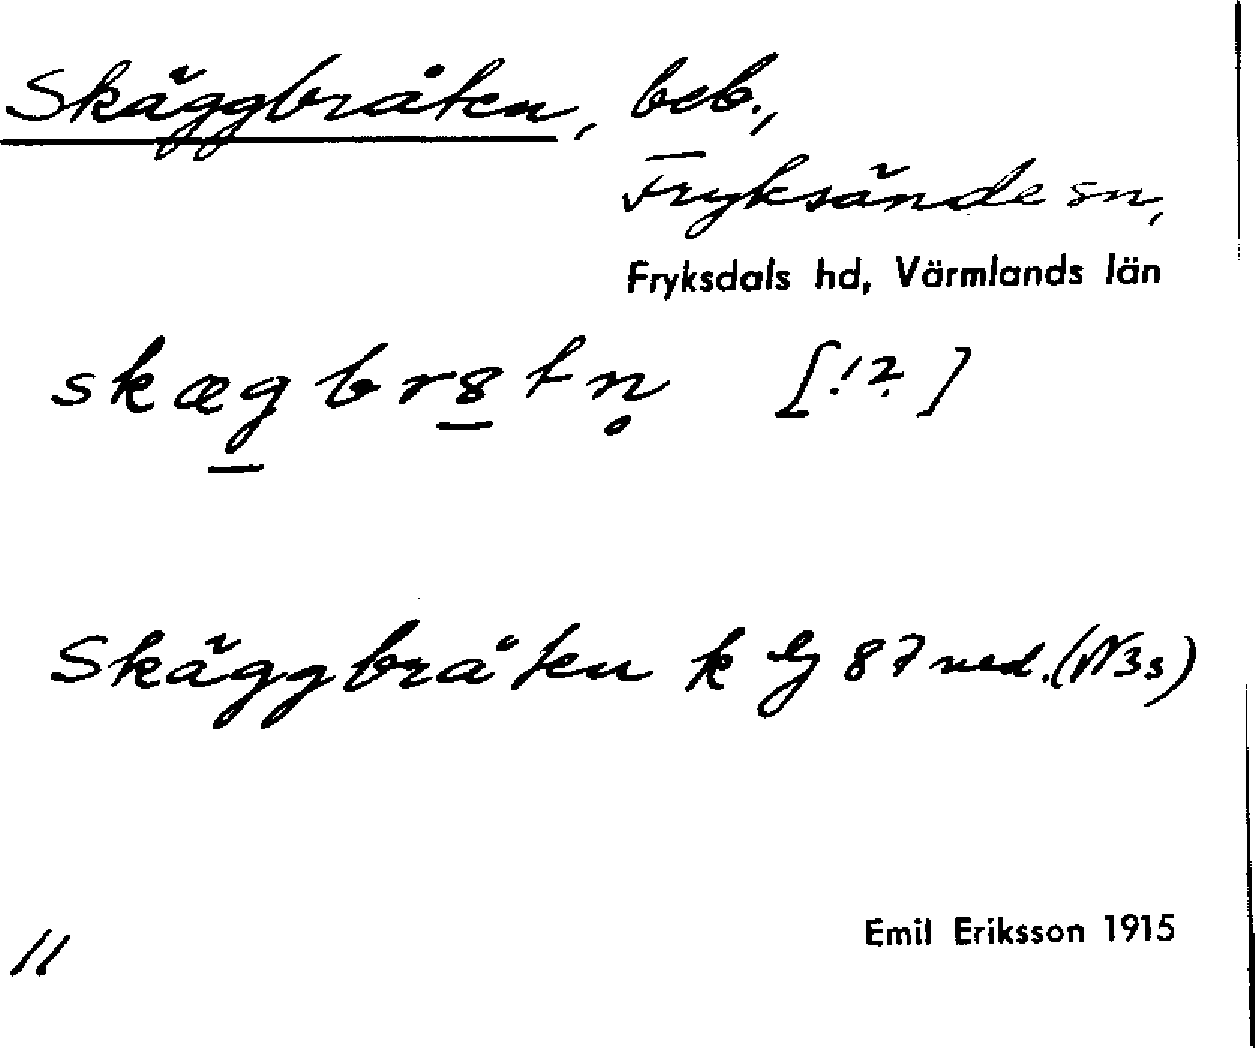 Skäggbråten, beb.,
Fryksände sn,
Fryksdals hd, Värmlands län
skægbr8tn̥ [!?]
Skäggbråten k Eg 87 ned. (N3s)
11
Emil Eriksson 1915